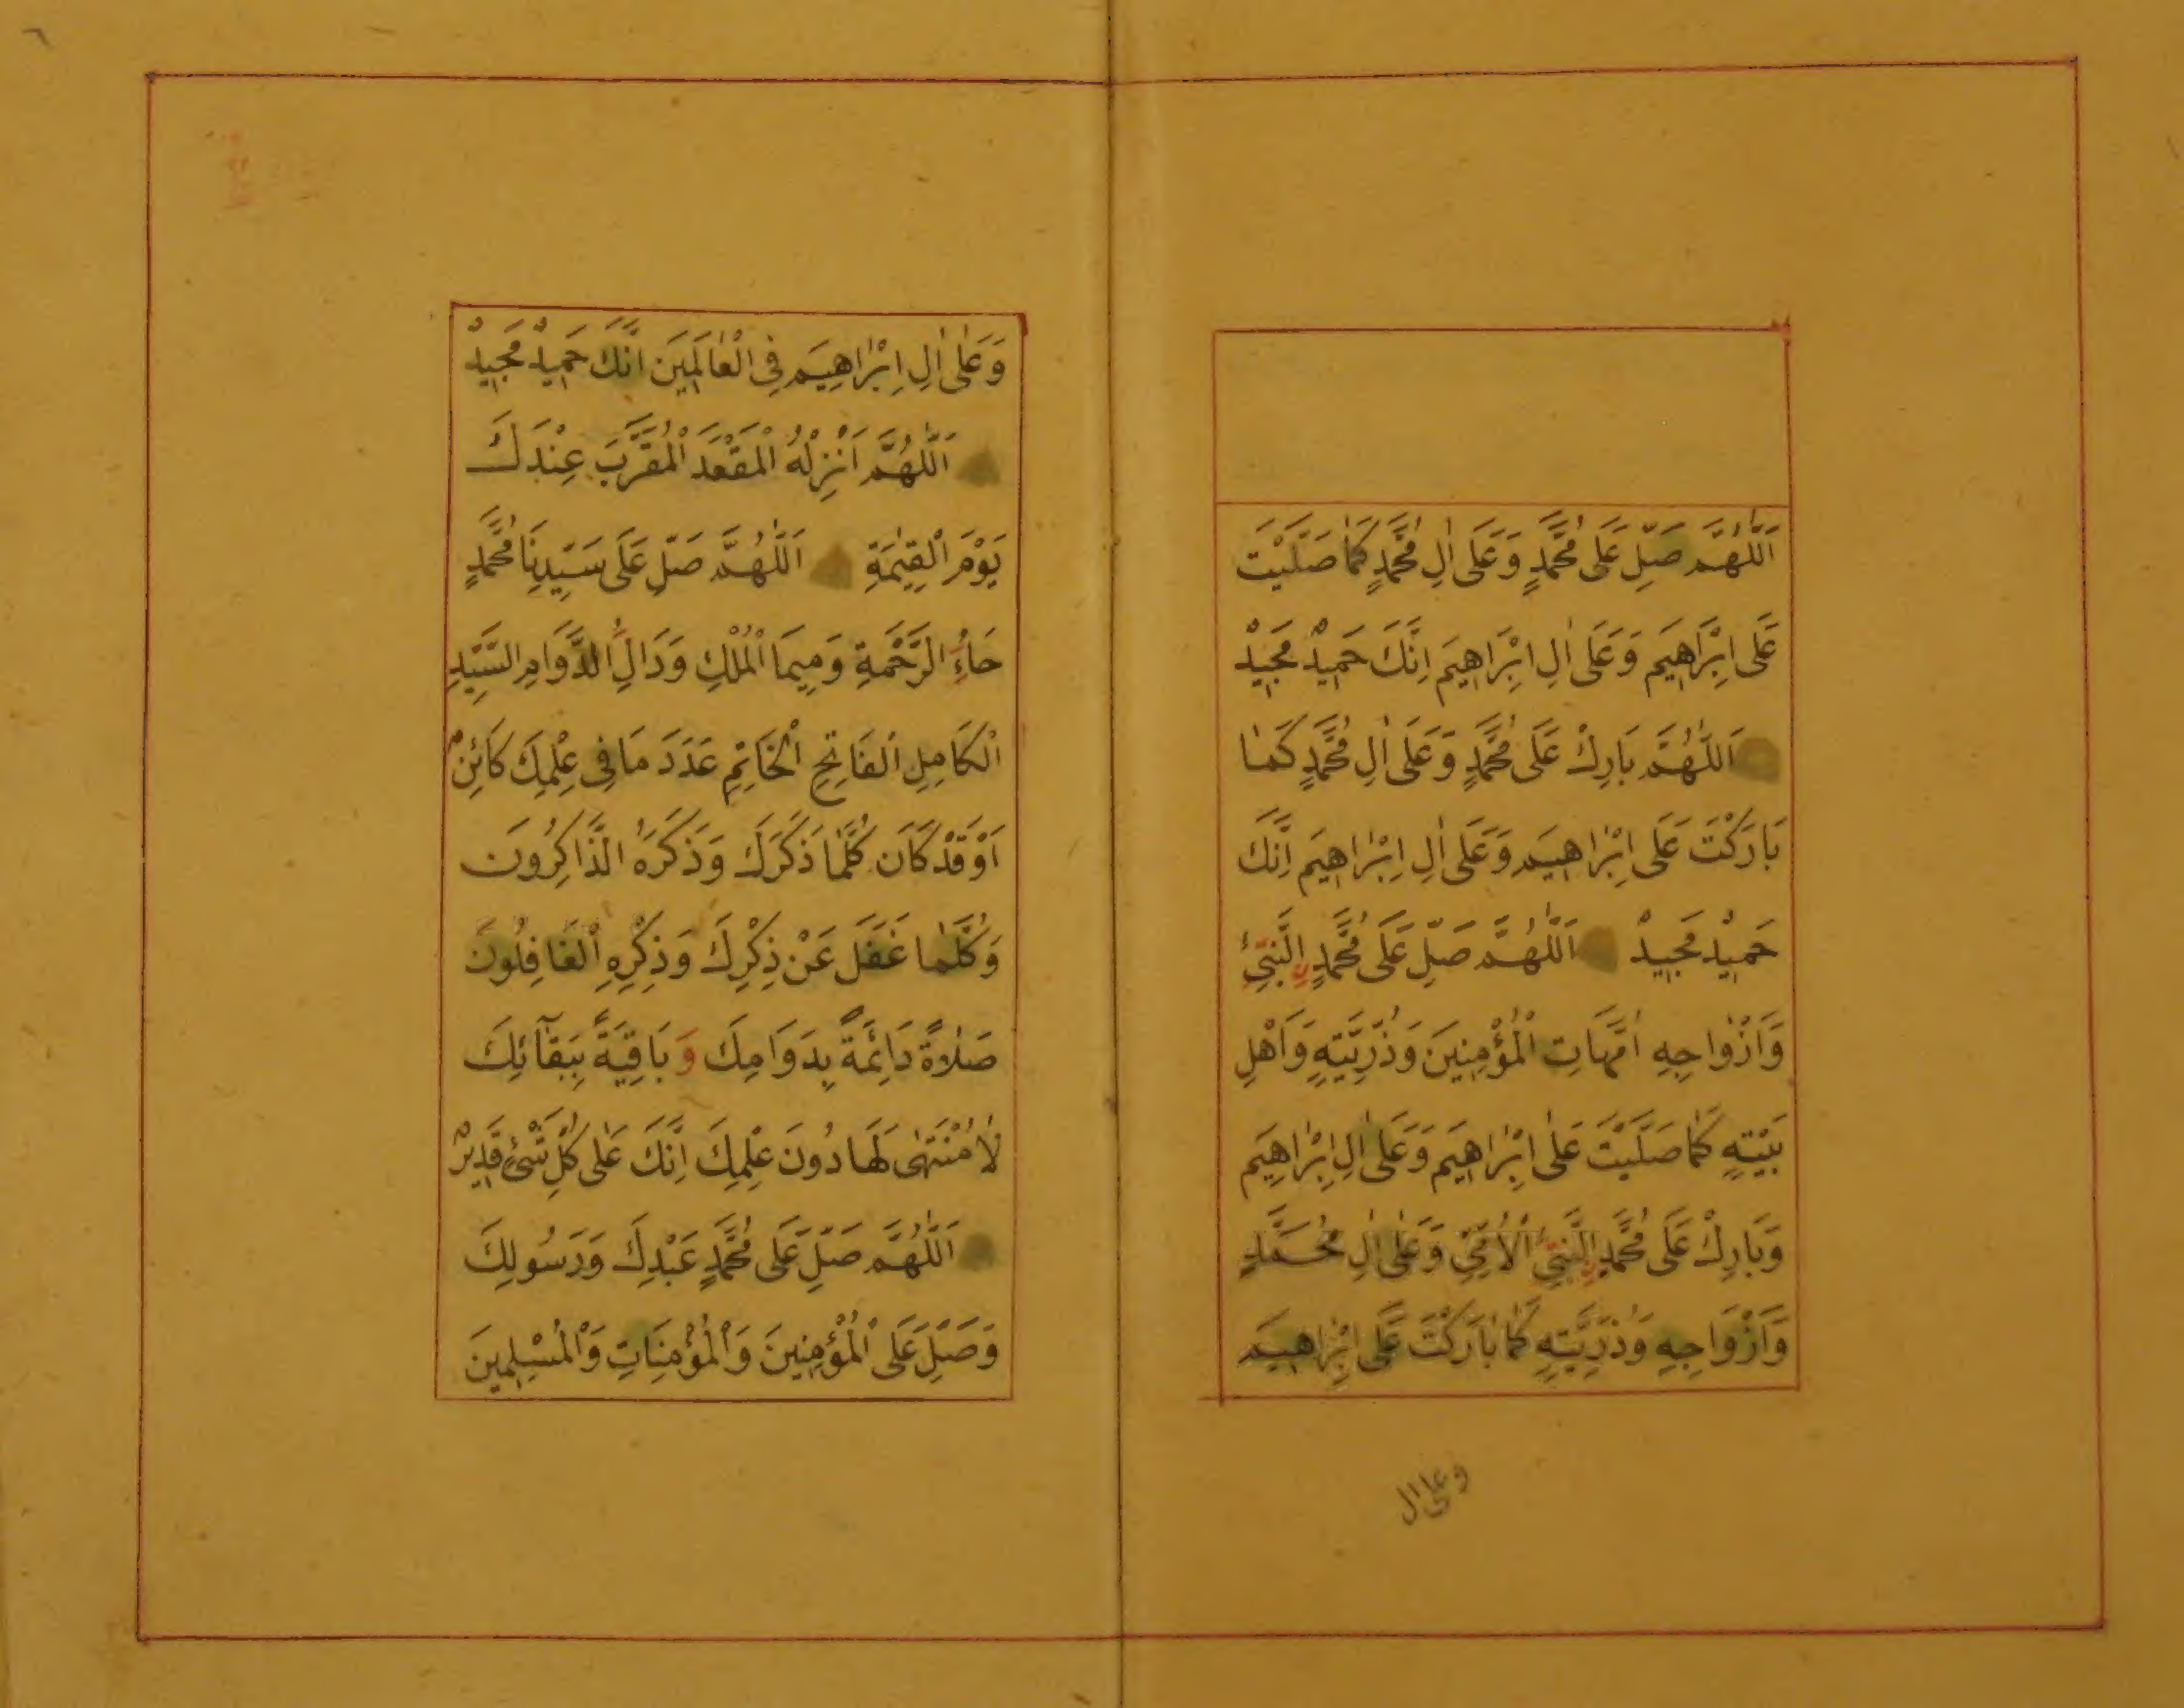 اَللّٰهُمَّ صَلِّ عَلَى مُحَمَّدٍ وَعَلَى اٰلِ مُحَمَّدٍ كَمَا صَلَّيْتَ
عَلَى اِبْرَاهِيمَ وَعَلَى اٰلِ اِبْرَاهِيمَ اِنَّكَ حَمِيدٌ مَجِيدٌ
اَللّٰهُمَّ بَارِكْ عَلَى مُحَمَّدٍ وَعَلَى اٰلِ مُحَمَّدٍ كَمَا
بَارَكْتَ عَلَى اِبْرٰاهِيمَ وَعَلَى اٰلِ اِبْرٰاهِيمَ اِنَّكَ
حَمِيدٌ مَجِيدٌ اَللّٰهُمَّ صَلِّ عَلَى مُحَمَّدٍ النَّبِيِّ
وَاَزْوَاجِهِ اُمَّهَاتِ الْمُؤْمِنِينَ وَذُرِّيَّتِهِ وَاَهْلِ
بَيْتِهِ كَمَا صَلَّيْتَ عَلٰى اِبْرٰاهِيمَ وَعَلٰى اٰلِ اِبْرٰاهِيمَ
وَبَارِكْ عَلَى مُحَمَّدٍ النَّبِيِّ الْاُمِّيِّ وَعَلٰى اٰلِ مُحَمَّدٍ
وَاَزْوَاجِهِ وَذُرِّيَّتِهِ كَمَا بَارَكْتَ عَلَى اِبْرٰاهِيمَ
وعلى ال
وَعَلٰى اٰلِ اِبْرٰاهِيمَ فِى الْعٰالَمِيَن اِنَّكَ حَمِيدٌ مَجِيدٌ
اَللّٰهُمَّ اَنْزِلْهُ الْمَقْعَدَ الْمُقَرَّبَ عِنْدَكَ
يَوْمَ الْقِيٰمَةِ اَللّٰهُمَّ صَلِّ عَلَى سَيِّدِنَا مُحَمَّدٍ
حَاءُ الرَّحْمَةِ وَمِيمَا الْمُلْكِ وَدَالِ الدَّوَامِ السَّيِّدِ
الْكَامِلِ الْفَاتِحِ الْخَاتِمِ عَدَدَ مَا فِى عِلْمِكَ كَائِنٌ
اَوْ قَدْ كَانَ كُلَّمَا ذَكَرَكَ وَذَكَرَهُ الذَّاكِرُونَ
وَكُلَّمٰا غَفَلَ عَنْ ذِكْرِكَ وَذِكْرِهِ الْغَافِلُونَ
صَلٰاةً دَائِمَةً بِدَوَامِكَ وَ بَاقِيَةً بِبَقَآئِكَ
لٰا مُنْتَهٰى لَهَا دُونَ عِلْمِكَ اِنَّكَ عَلٰى كُلِّ شَىْءٍ قَدِيرٌ
اَللّٰهُمَّ صَلِّ عَلَى مُحَمَّدٍ عَبْدِكَ وَرَسُولِكَ
وَصَلِّ عَلَى الْمُؤْمِنِينَ وَالْمُؤْمِنَاتِ وَالْمُسْلِمِينَ